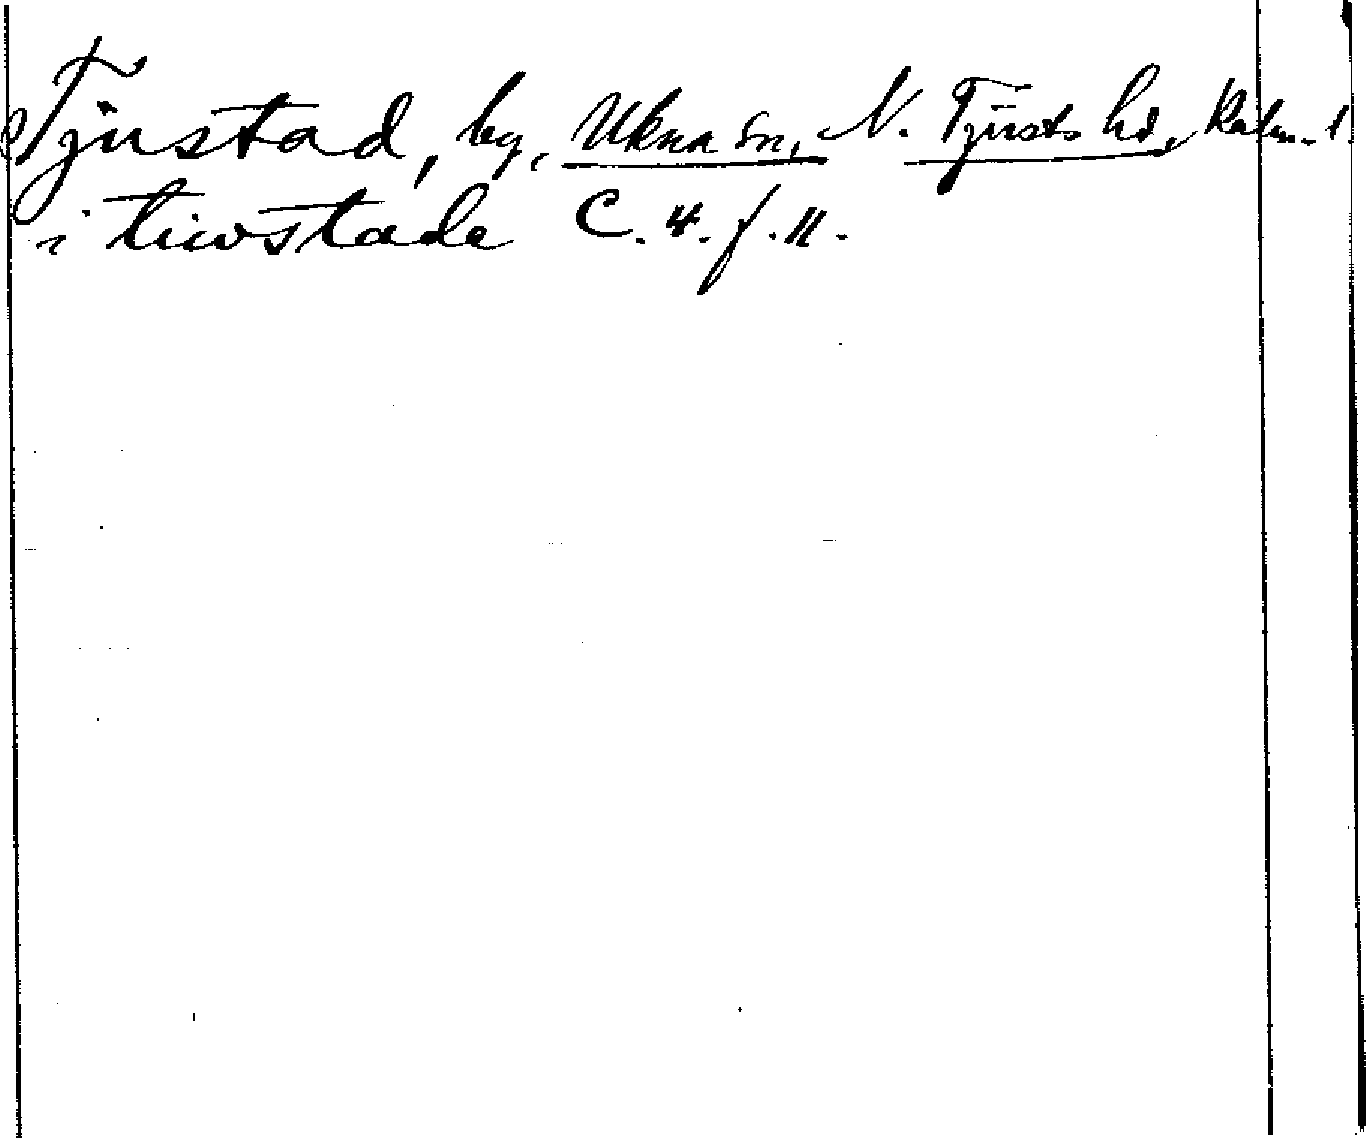 Tjustad, by, Ukna sn, N. Tjusts hd, Kalm. l
i tiwstade C. 4. f. 11.